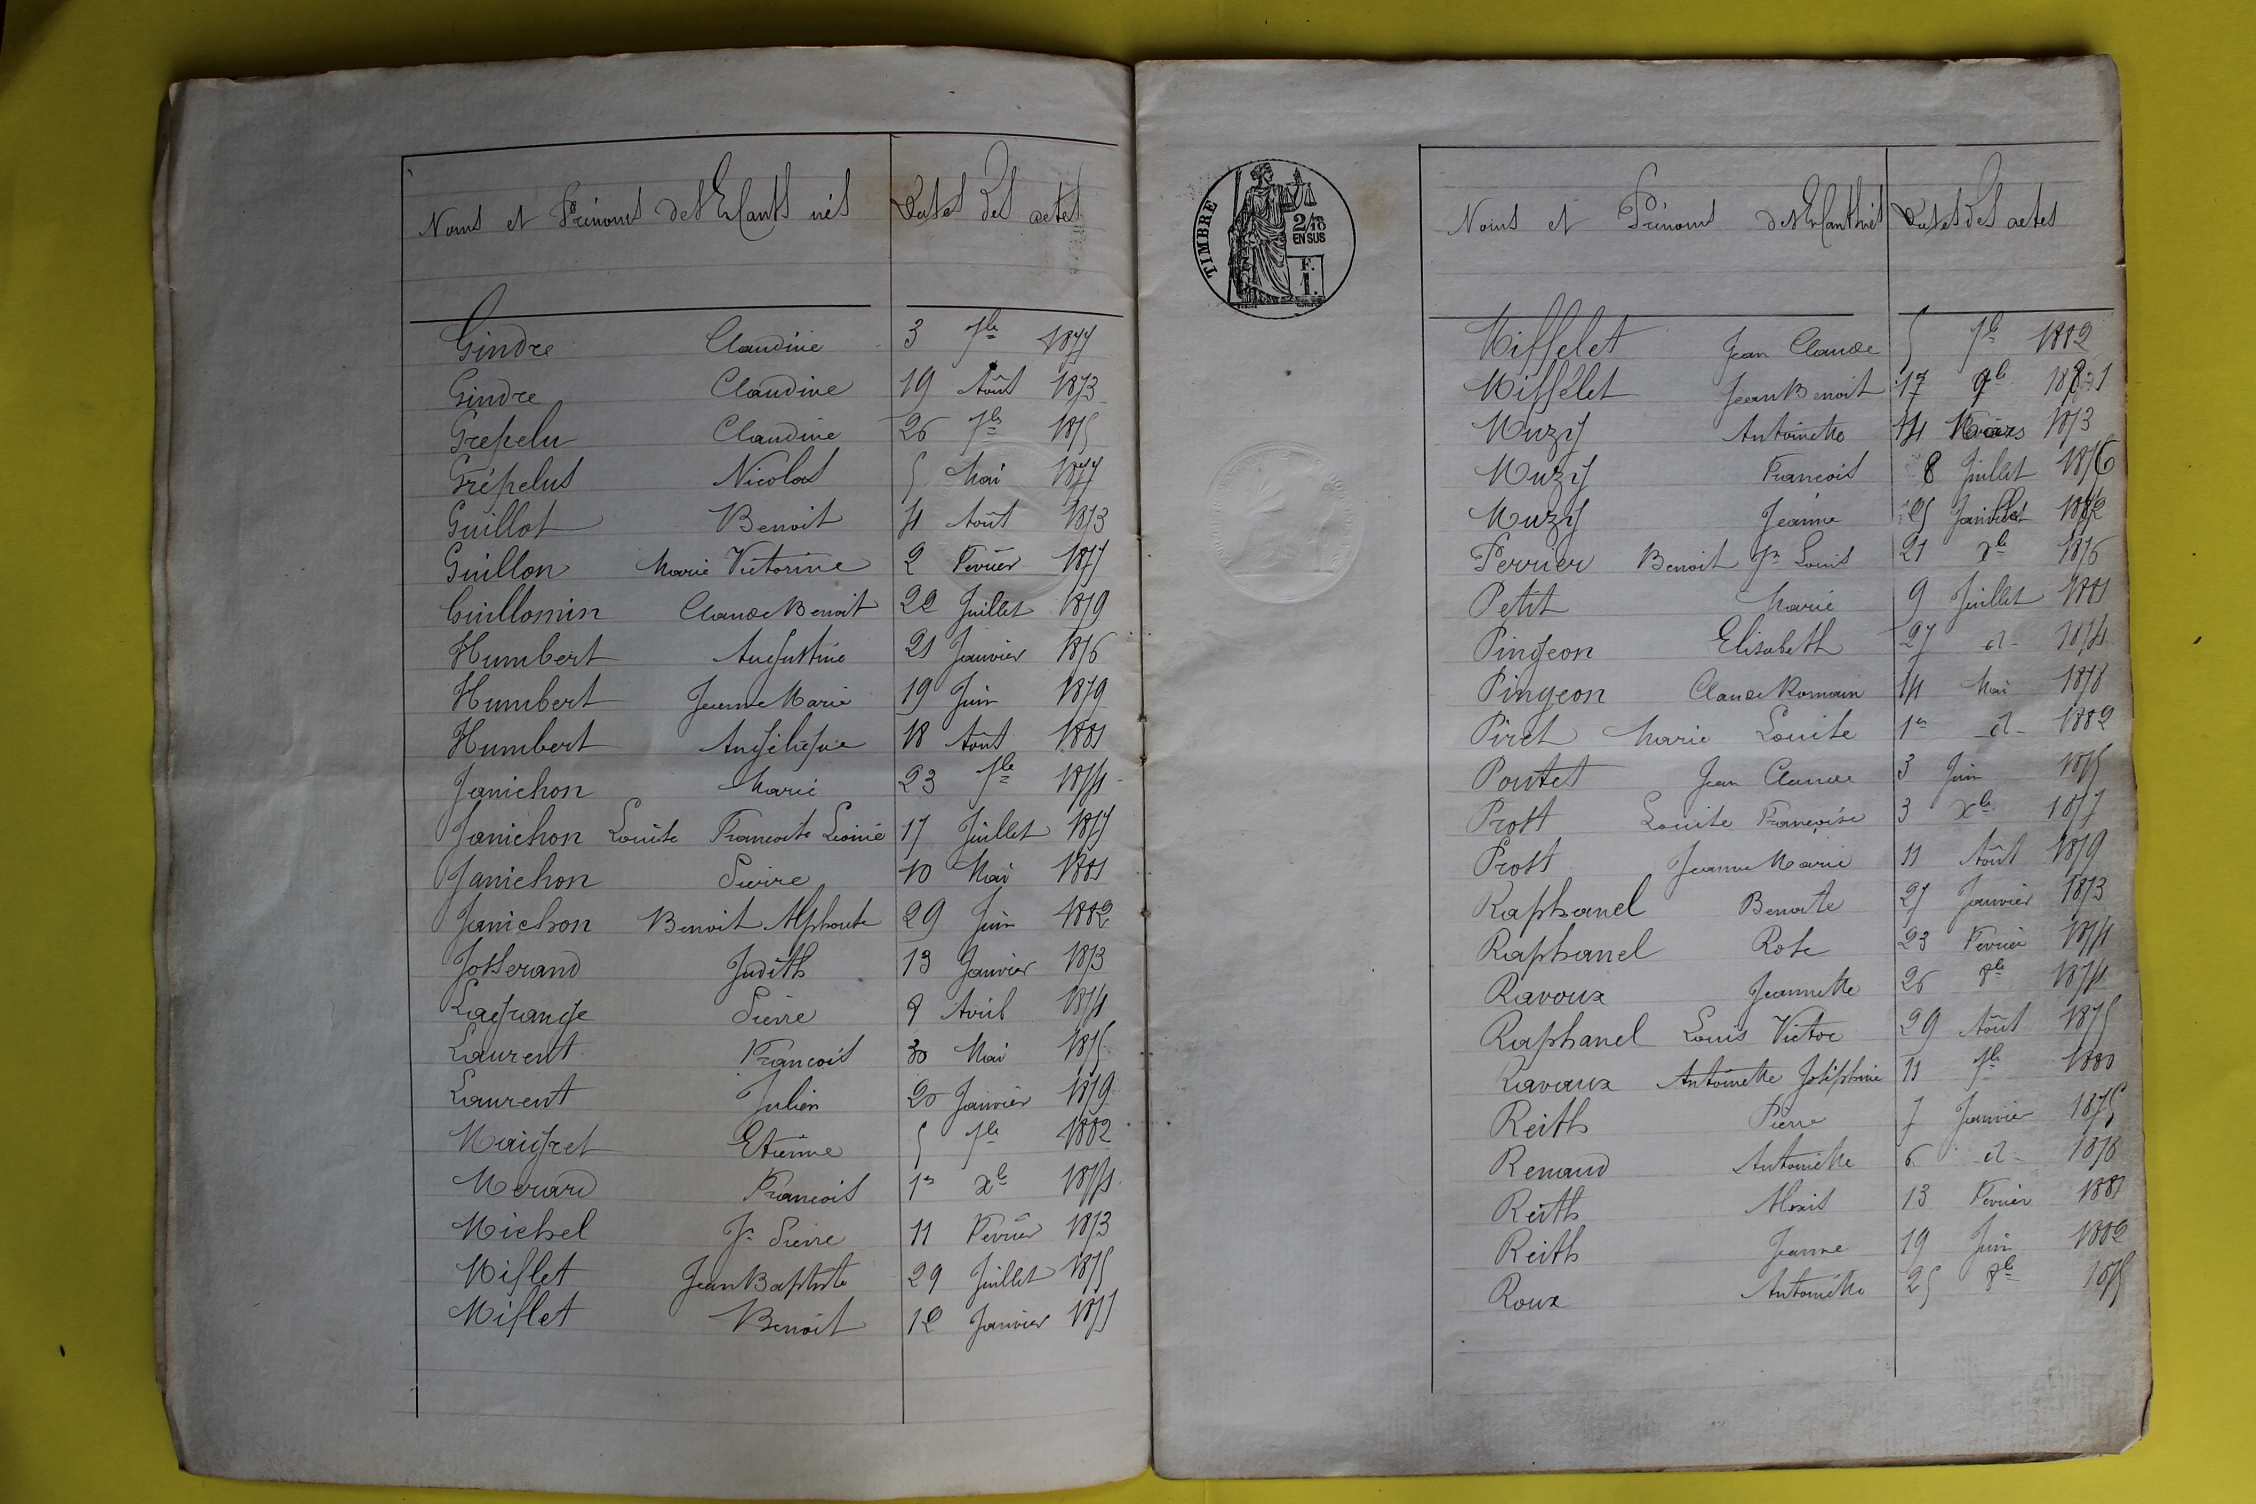 Noms et Prénoms des Enfants nés Dates des actes
Gindre Claudine 3 7bre 1877
Gindre Claudine 19 Août 1873
Grepelu Claudine 26 7bre 1875
Grépelus Nicolas 5 Mai 1877
Guillot Benoit 4 Août 1873
Guillon Marie Victorine 2 Fevrier 1877
Guillomin Claude Benoit 22 Juillet 1879
Humbert Augustine 21 Janvier 1876
Humbert Jeanne Marie 19 Juin 1879
Humbert Angélique 18 Août 1881
Janichon Marie 23 7bre 1874
Janichon Louise Francoise Leonie 17 Juillet 1877
Janichon Pierre 10 Mai 1881
Janichon Benoit Alphonse 29 Juin 1882
Josserand Judith 13 Janvier 1873
Lagrange Pierre 8 Avril 1874
Laurent François 30 Mai 1875
Laurent Julien 20 Janvier 1879
Maigret Etienne 5 7bre 1882
Merard Francois 1er Xbre 1874
Michel Jn Pierre 11 Fevrier 1873
Miflet Jean Baptiste 29 Juillet 1875
Miflet Benoit 12 Janvier 1877
TIMBRE
2/10
EN SUS
F.
1.
Noms et Prénoms des Enfants nés Dates des actes
Miffelet Jean Claude 5 7bre 1882
Miffelet Jean Benoit 17 1881
Muzy Antoinette 14 Mars 1873
Muzy Francois 8 Juillet 1876
Muzy Jeanne 25 1882
Perrier Benoit Jn Louis 21 1876
Petit Marie 9 Juillet 1881
Pingeon Elisabeth 27 d- 1874
Pingeon Claude Romain 14 Mai 1878
Piret Marie Louise 1er -d- 1882
Poutet Jean Claude 3 Juin 1875
Prost Louise Françoise 3 Xbre 1877
Prost Jeanne Marie 11 Août 1879
Raphanel Benoite 27 Janvier 1873
Raphanel Rose 23 Fevrier 1874
Ravoux Jeannette 26 8bre 1874
Raphanel Louis Victor 29 Août 1875
Ravoux Antoinette Joséphine 11 7bre 1880
Reith Pierre 7 Janvier 1875
Renaud Antoinette 6 -d- 1878
Reith Alexis 13 Fevrier 1881
Reith Jeanne 19 Juin 1882
Roux Antoinette 25 8bre 1875